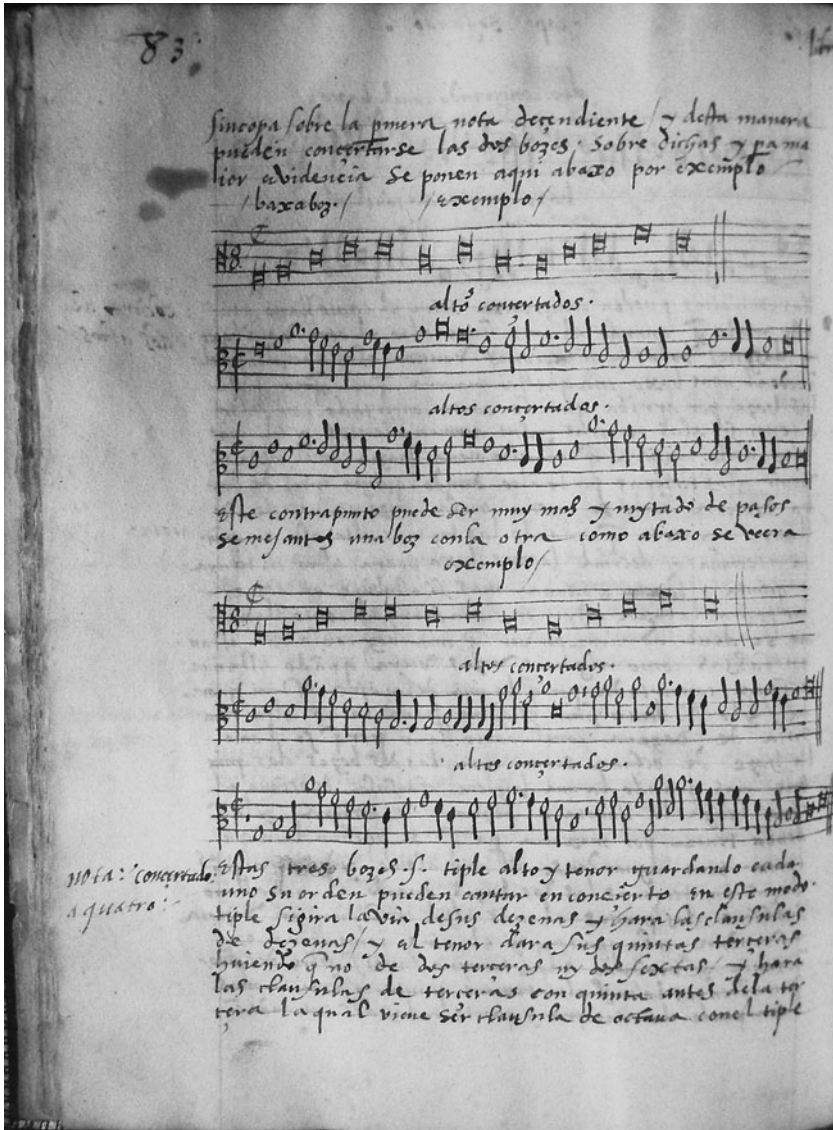 83
libr
sincopa sobre la pmera nota decendiente / y desta manera
pueden concertarse las dos bozes. sobre dichas y pa ma
lior evidençia se ponen aqui abaxo por exemplo
/ baxa boz. / / exemplo /
altos conçertados.
altos conçertados.
este contrapunto puede ser muy mas y mytado de pasos
semejantes una boz con la otra como abaxo se veera
exemplo /
altos conçertados.
altos conçertados.
nota: conçertado
a quatro:
estas tres bozes .s. tiple alto y tenor guardando cada
uno su orden pueden cantar en conçierto en este modo.
tiple sigira la via de sus dezenas y hara las clausulas
de dezenas / y el tenor dara sus quintas terceras
huiendo q no de dos terceras ny dos sextas / y hara
las clausulas de terceras con quinta antes dela ter
cera la qual viene ser clausula de octava con el tiple